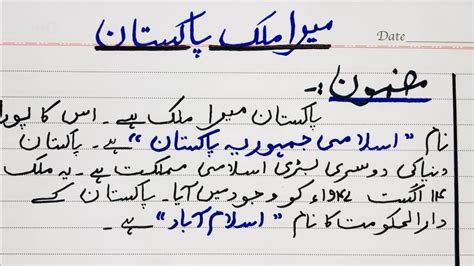 میرا ملک پاکستان
Date
مضمون :۔
پاکستان میرا ملک ہے۔ اس کا پورا
نام "اسلامی جمہوریہ پاکستان" ہے۔ پاکستان
دنیا کی دوسری بڑی اسلامی مملکت ہے۔ یہ ملک
۱۴ اگست ۱۹۴۷ء کو وجود میں آیا۔ پاکستان کے
دارالحکومت کا نام "اسلام آباد" ہے۔